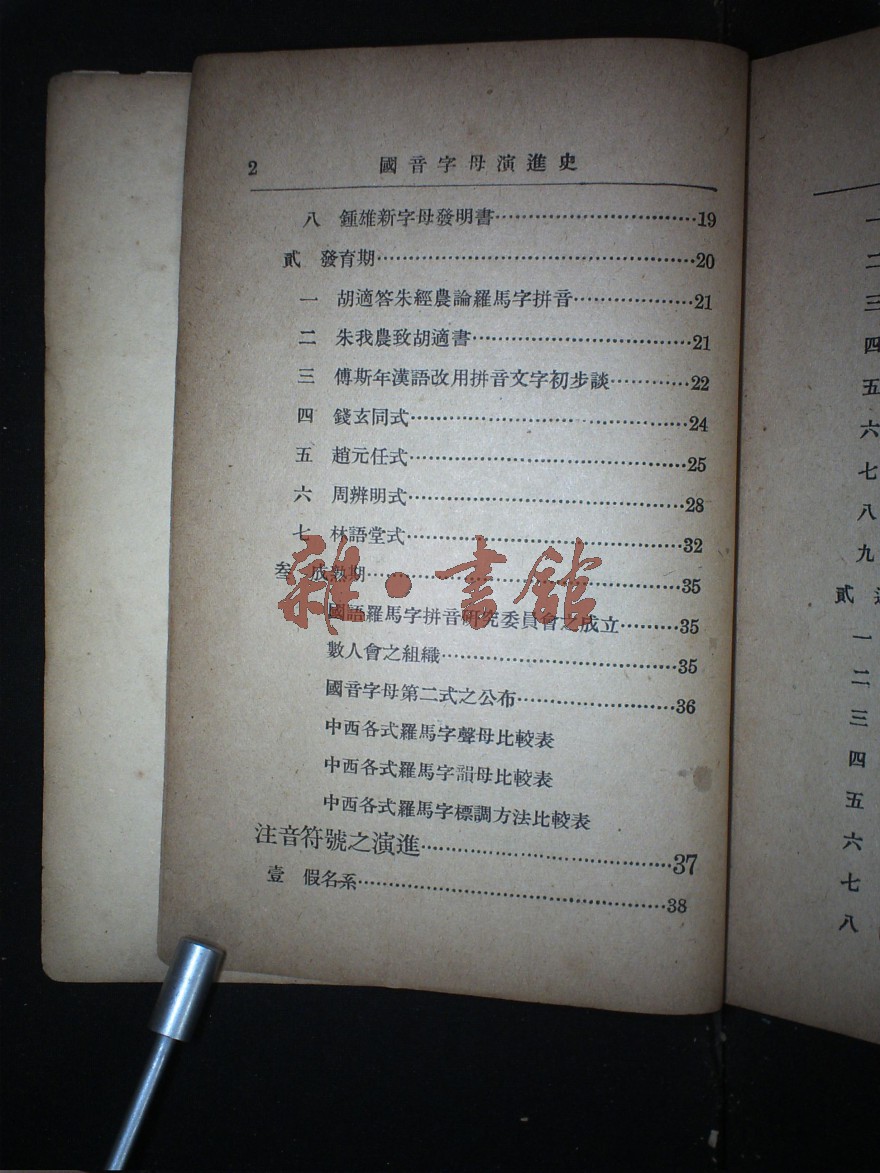 2 國音字母演進史
八 鍾雄新字母發明書………………………19
貳 發育期………………………………………20
一 胡適答朱經農論羅馬字拼音……………21
二 朱我農致胡適書…………………………21
三 傅斯年漢語改用拼音文字初步談………22
四 錢玄同式…………………………………24
五 趙元任式…………………………………25
六 周辨明式…………………………………28
七 林語堂式…………………………………32
叁 成熟期………………………………………35
國語羅馬字拼音研究委員會之成立………35
數人會之組織………………………………35
國音字母第二式之公布……………………36
中西各式羅馬字聲母比較表
中西各式羅馬字韻母比較表
中西各式羅馬字標調方法比較表
注音符號之演進………………………………37
壹 假名系………………………………………38
雜·書館
一
二
三
四
五
六
七
八
九
貳
一
二
三
四
五
六
七
八